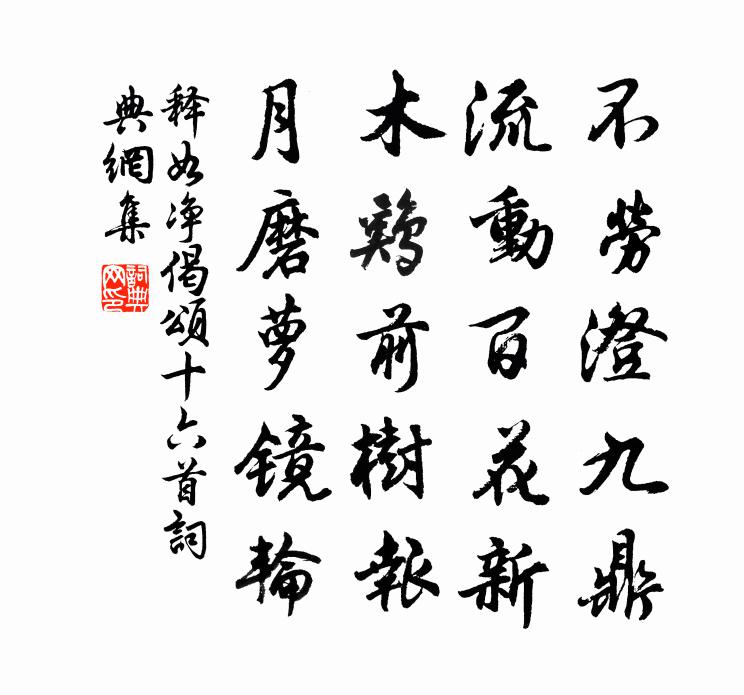 不勞澄九鼎
流動百花新
木鷄前樹報
月磨夢鏡輪
释如净偈頌十六首詞
典網集
詞典
网印